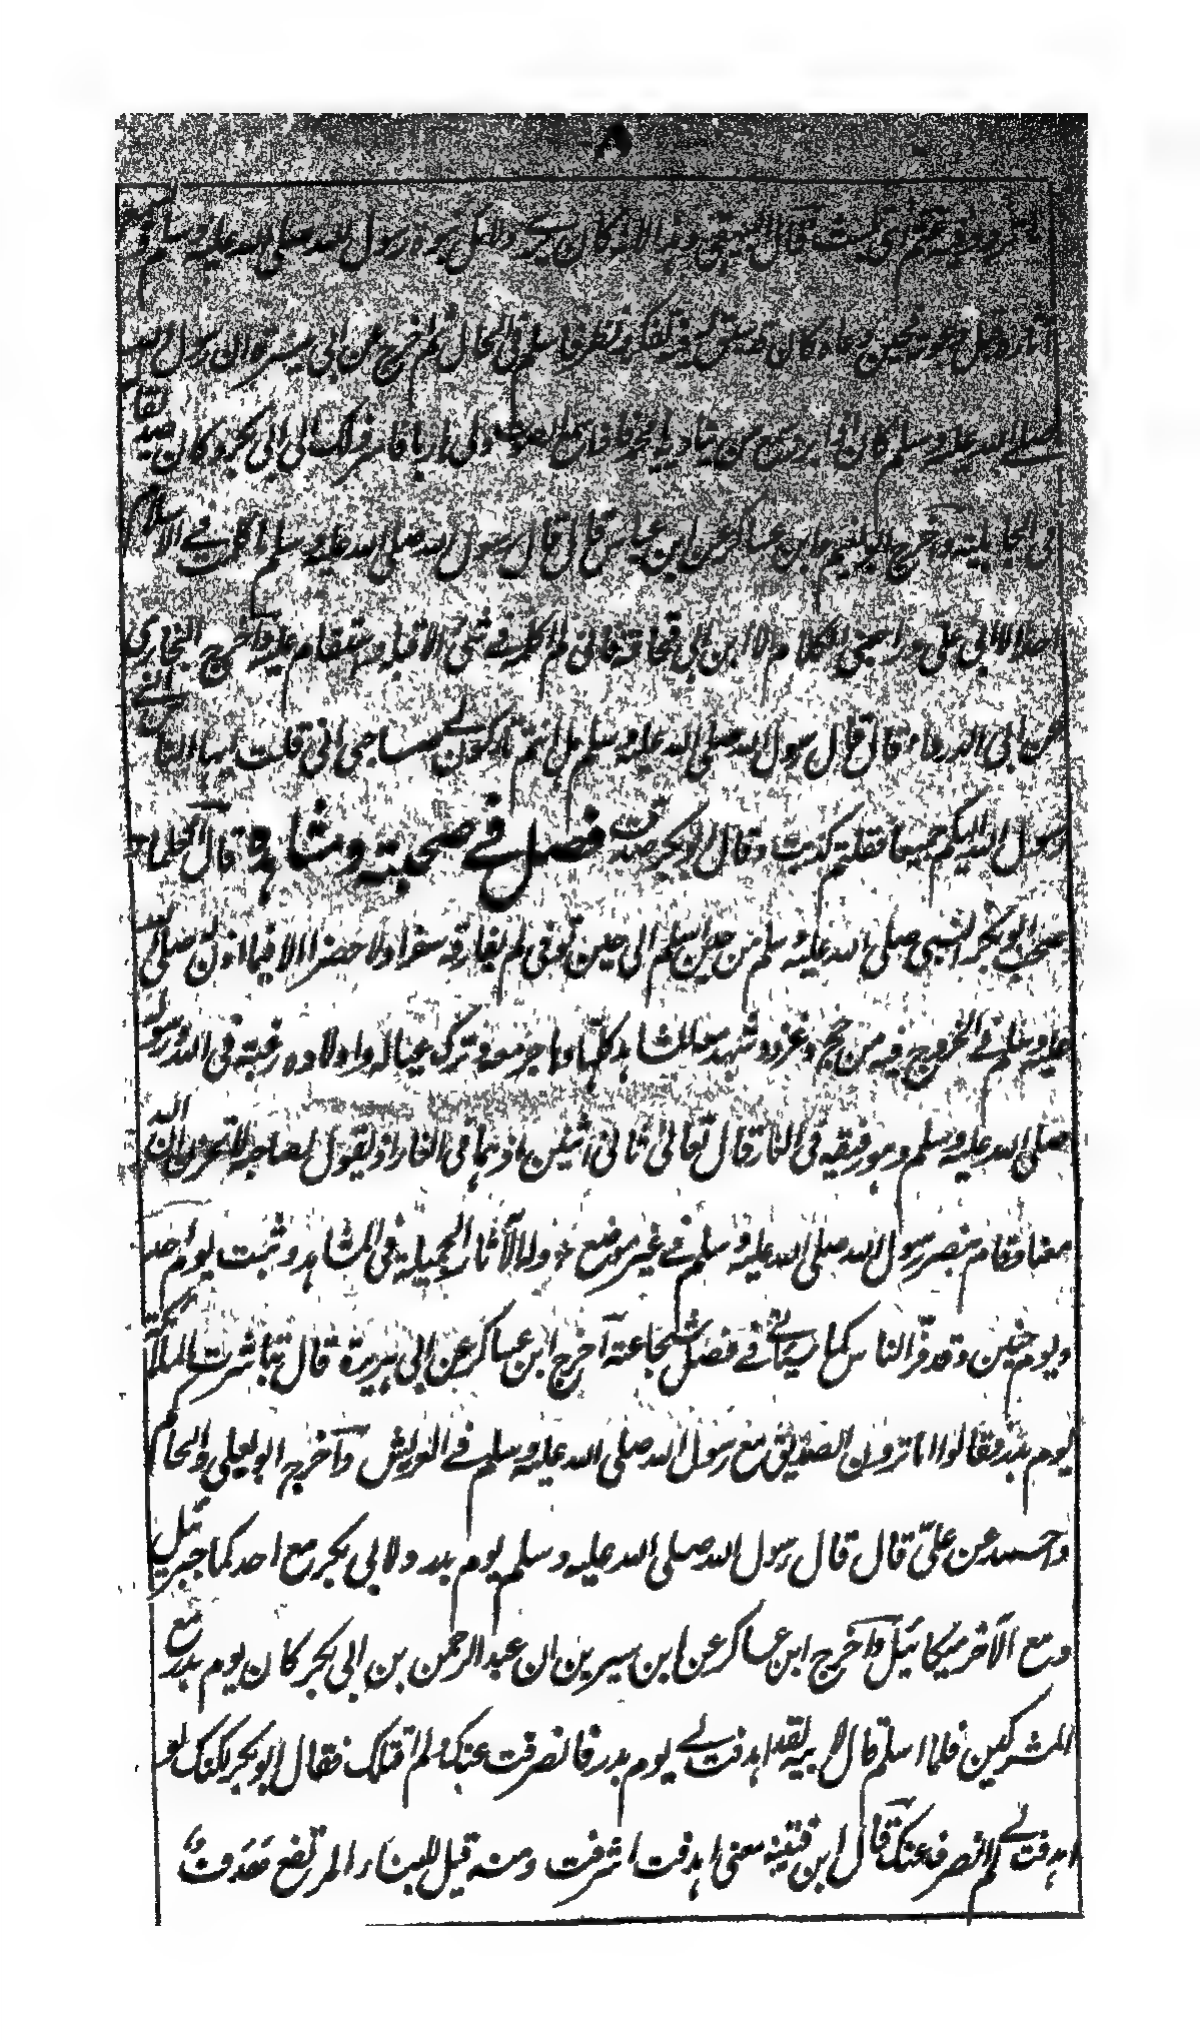 ٨
قلت قال البيهقي وهذا لانه كان يرى دلائل نبوة رسول الله صلى الله عليه وسلم
قبل دعوته فحين دعاه كان قد سبق له فيه تفكر ونظر فاسلم في الحال ثم اخرج عن ابي ميسرة ان رسول الله
صلى الله عليه وسلم كان اذا برز سمع من يناديه يا محمد فاذا سمع الصوت ولى هاربا فاسر ذلك الى ابي بكر وكان صديقا له
في الجاهلية واخرج ابو نعيم وابن عساكر عن ابن عباس قال قال رسول الله صلى الله عليه وسلم ما كلمت في الاسلام
احدا الا ابى علي وراجعني الكلام الا ابن ابي قحافة فاني لم اكلمه في شئ الا قبله واستقام عليه واخرج البخاري
عن ابي الدرداء قال قال رسول الله صلى الله عليه وسلم هل انتم تاركون لي صاحبي اني قلت ايها الناس اني
رسول الله اليكم جميعا فقلتم كذبت وقال ابو بكر صدقت فصل في صحبته ومشاهده قال العلماء
صحب ابو بكر النبي صلى الله عليه وسلم من حين اسلم الى حين توفي لم يفارقه سفرا ولا حضرا الا فيما اذن له صلى الله
عليه وسلم في الخروج فيه من حج وغزو وشهد معه المشاهد كلها وهاجر معه وترك عياله واولاده رغبة في الله ورسوله
صلى الله عليه وسلم وهو رفيقه في الغار قال تعالى ثاني اثنين اذ هما في الغار اذ يقول لصاحبه لا تحزن ان الله
معنا وقام بنصر رسول الله صلى الله عليه وسلم في غير موضع وله الآثار الجميلة في المشاهد وثبت يوم احد
ويوم حنين وقد فر الناس كما سيأتي في فصل شجاعته اخرج ابن عساكر عن ابي هريرة قال تباشرت الملائكة
يوم بدر فقالوا اما ترون الصديق مع رسول الله صلى الله عليه وسلم في العريش واخرج ابو يعلى والحاكم
واحمد عن علي قال قال رسول الله صلى الله عليه وسلم يوم بدر ولابي بكر مع احدكما جبريل
ومع الآخر ميكائيل واخرج ابن عساكر عن ابن سيرين ان عبد الرحمن بن ابي بكر كان يوم بدر مع
المشركين فلما اسلم قال لابيه لقد اهدفت لي يوم بدر فانصرفت عنك ولم اقتلك فقال ابو بكر لكنك لو
اهدفت لي لم انصرف عنك قال ابن قتيبة معنى اهدفت اشرفت ومنه قيل للبناء المرتفع هدف